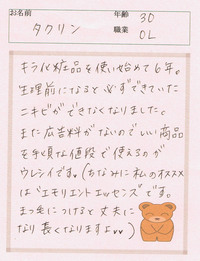 お名前 タクリン 年齢 30
職業 OL
キラ化粧品を使い始めて6年。
生理前になると必ずできていた
ニキビができなくなりました。
また広告料がないのでいい商品
を手頃な値段で使えるのが
ウレシイです。(ちなみに私のオススメ
は"エモリエントエッセンス"です。
まつ毛につけると丈夫に
なり長くなりますよ♥♥)